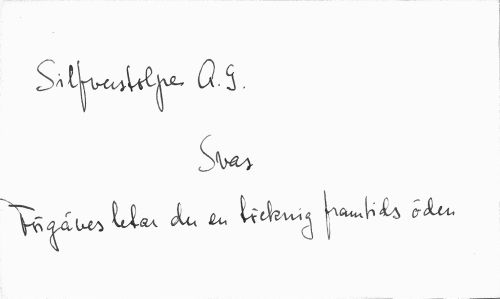 Silfverstolpe A. G.
Svar
Förgäves letar du en teckning framtids öden